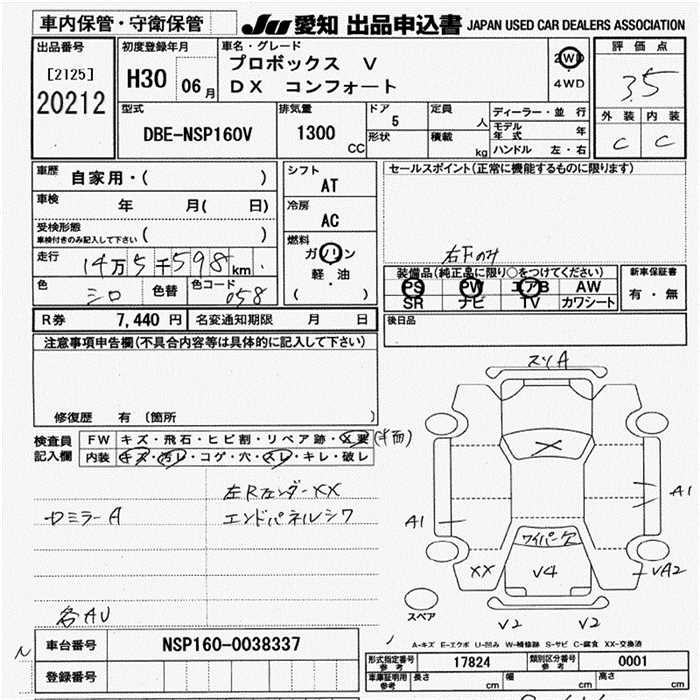 車内保管・守衛保管
JU 愛知 出品申込書 JAPAN USED CAR DEALERS ASSOCIATION
出品番号 [2125] 20212
初度登録年月 H30 06月
車名・グレード プロボックス V
DX コンフォート
2WD
4WD
評価点 3.5
外装 内装
C C
型式 DBE-NSP160V
排気量 1300 CC
ドア 5
形状
定員 人
積載 kg
ディーラー・並行
モデル年式 年
ハンドル 左・右
車歴 自家用・( )
車検 年 月( 日)
受検形態
車検付きのみ記入して下さい ( )
走行 14万5千598km
色 シロ 色替 色コード 058
シフト AT
冷房 AC
燃料 ガソリン
軽・油
( )
セールスポイント(正常に機能するものに限ります)
右Fのみ
装備品(純正品に限り○をつけてください)
PS PW エアB AW
SR ナビ TV カワシート
新車保証書
有・無
R券 7,440円 名変通知期限 月 日
後日品
注意事項申告欄(不具合内容等は具体的に記入して下さい)
修復歴 有 〔箇所 〕
検査員記入欄
FW キズ・飛石・ヒビ割・リペア跡・X要
内装 キズ・汚レ・コゲ・穴・スレ・キレ・破レ
左Rフェンダー XX
ロミラーA エンドパネルシワ
各AU
スソA
X
A1
A1
ワイパー欠
XX V4 VA2
スペア
V2 V2
A-キズ E-エクボ U-凹み W-補修跡 S-サビ C-腐食 XX-交換済
車台番号 NSP160-0038337
登録番号
型式指定番号 参考 17824 類別区分番号 参考 0001
車庫証明用 参考 長さ cm 幅 cm 高さ cm